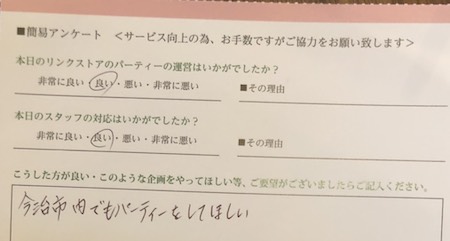 ■簡易アンケート ＜サービス向上の為、お手数ですがご協力をお願い致します＞
本日のリンクストアのパーティーの運営はいかがでしたか？
非常に良い・良い・悪い・非常に悪い ■その理由
本日のスタッフの対応はいかがでしたか？
非常に良い・良い・悪い・非常に悪い ■その理由
こうした方が良い・このような企画をやってほしい等、ご要望がございましたらご記入ください。
今治市内でもパーティーをしてほしい